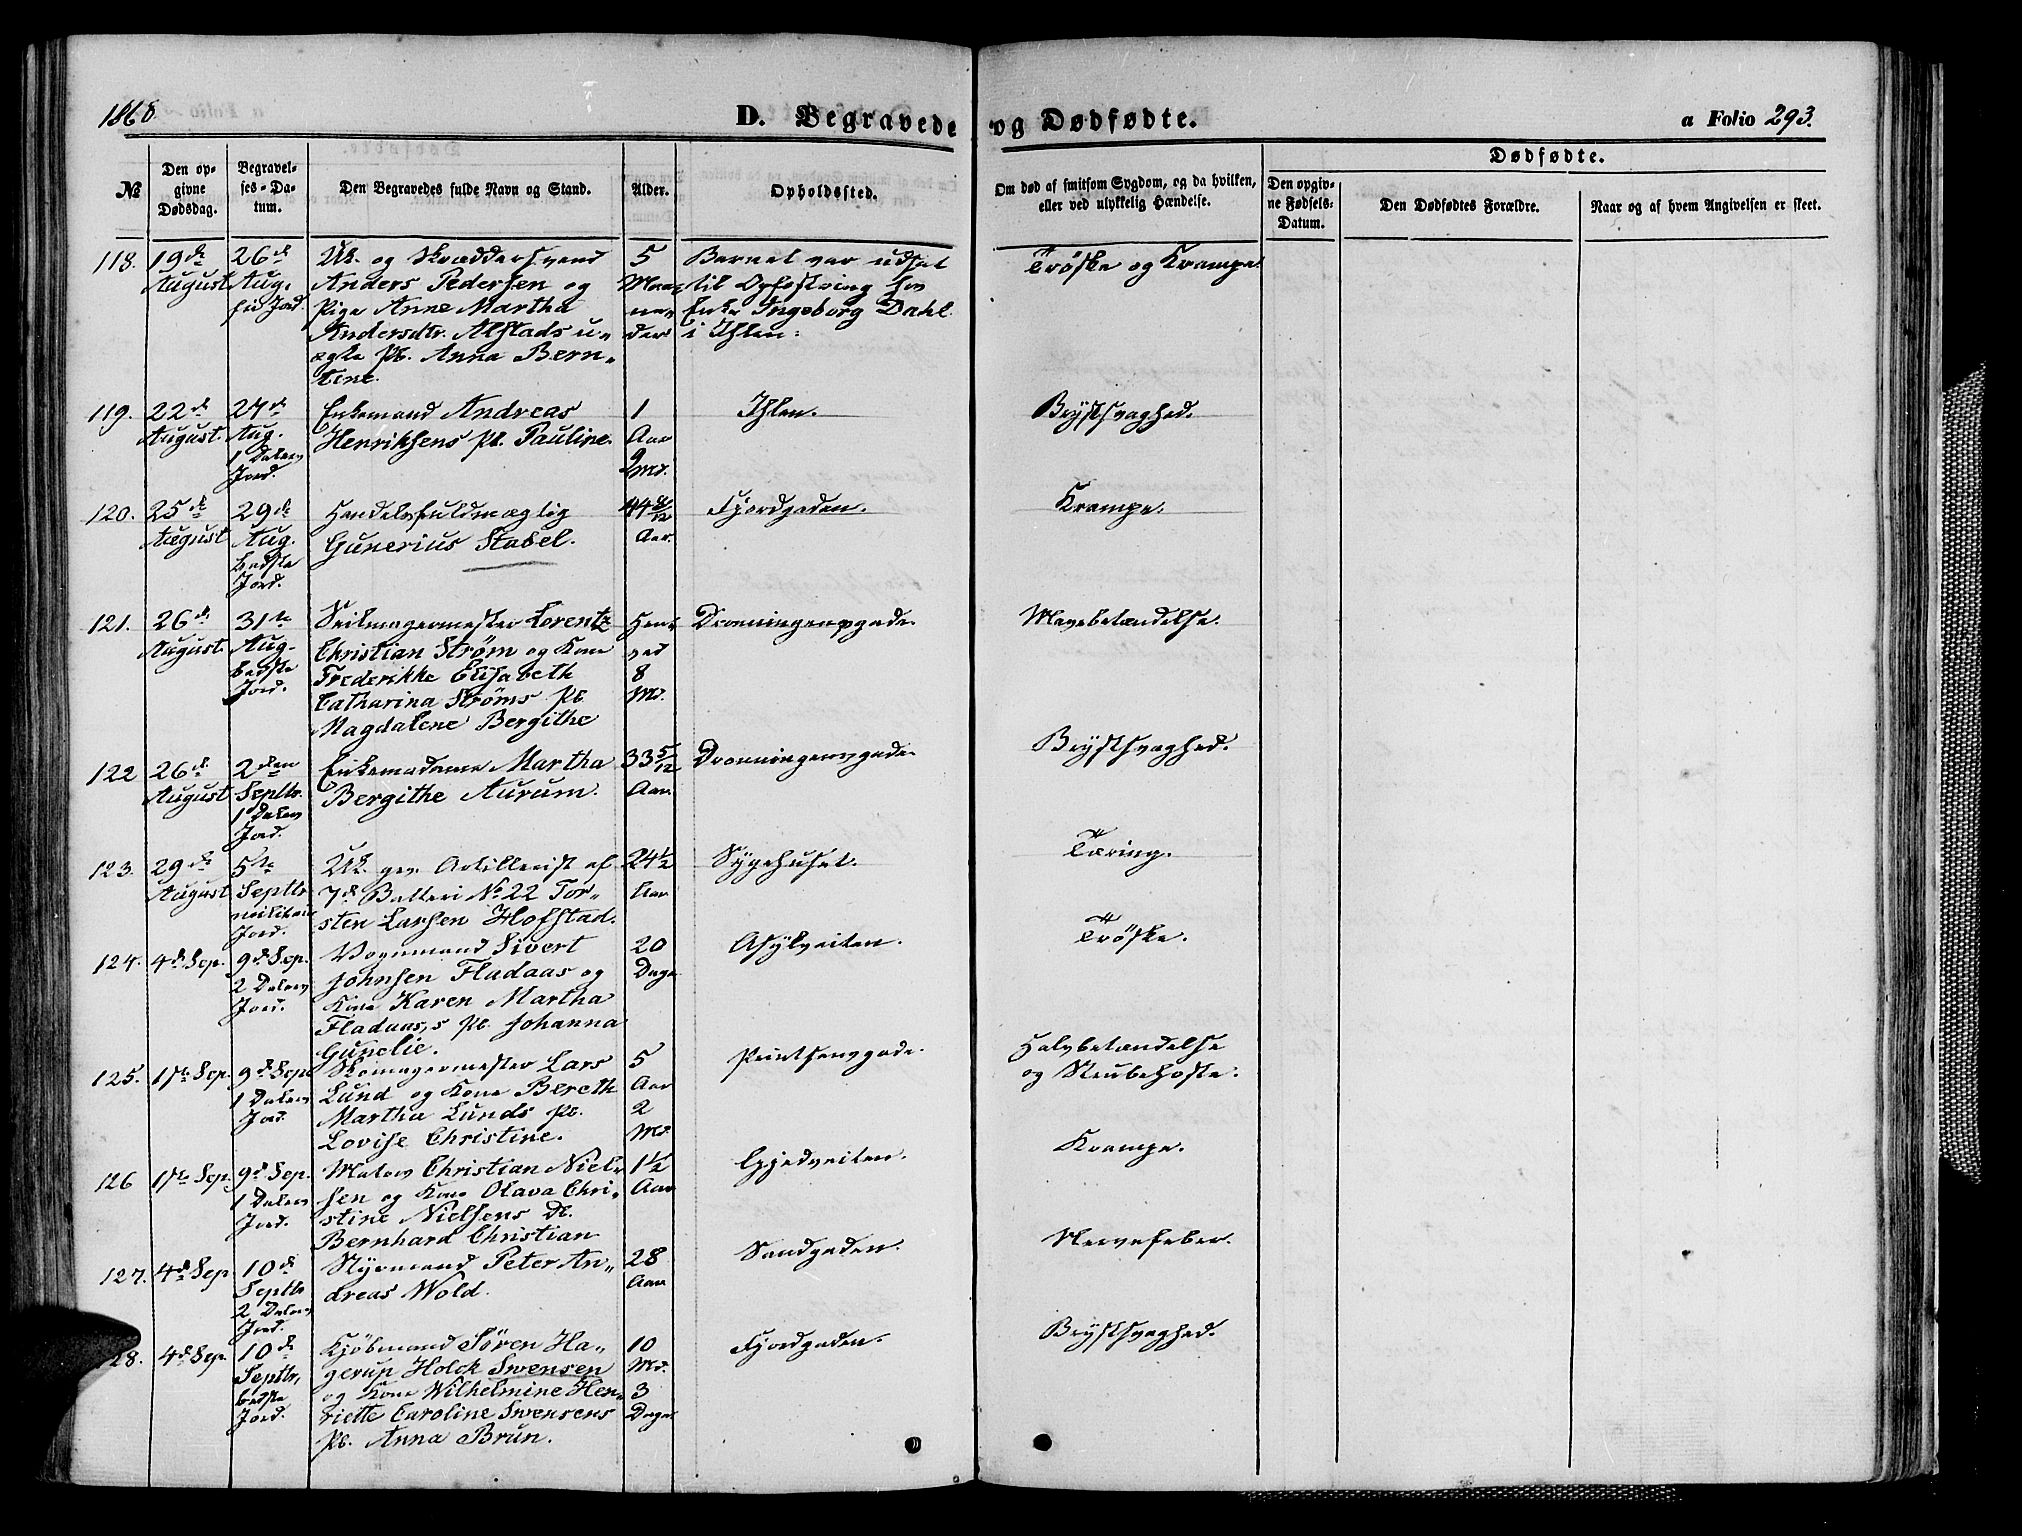 1868
D. Begravede og Dødfødte.
a Folio 293.
№
Den opgivne Dødsdag.
Begravelses-Datum.
Den Begravedes fulde Navn og Stand.
Alder.
Opholdssted.
Om død af smitsom Sygdom, og da hvilken, eller ved ulykkelig Hændelse.
Dødfødte.
Den opgivne Fødsels-Datum.
Den Dødfødtes Forældre.
Naar og af hvem Angivelsen er skeet.
118. 19de 26de Uk. og Skræddersvend 5 Barnet var udsat Trøske og Krampe.
August Aug. Anders Pedersen og Maa- til Opfostring hos
fri Jord. Pige Anne Martha ne- Enke Ingeborg Dahl
Andersdtr. Alstads u- der i Ihlen.
ægte Pb. Anna Bern-
tine.
119. 22de 27de Enkemand Andreas 1 Ihlen. Brystsvaghed.
August. Aug. Henriksens Pb. Pauline. Aar
1 Dalers 9 Md.
Jord.
120. 25de 29de Handelsfuldmægtig 44 8/12 Fjordgaden. Krampe.
August Aug. Gunerius Stabel. Aar.
bedste
Jord.
121. 26de 31te Seilmagermester Lorentz Dronningensgade. Mavebetændelse.
August. Aug. Christian Strøm og Kone
bedste Frederikke Elisabeth 8
Jord. Catharina Strøms Pb. Md.
Magdalene Bergithe
122 26de 2den Enkemadame Martha 33 5/12 Dronningensgade. Brystsvaghed.
August Septbr. Bergithe Aurum. Aar
1 Dalers
Jord.
123. 29de 5te Uk. gev. Artillerist af 24 1/2 Sygehuset. Tæring.
August Septbr. 7de Batteri No 22 Tor- Aar
militair sten Larsen Hofstad.
Jord.
124. 4de Sep. 9de Sep. Vognmand Sivert 20 Asylveiten. Trøske.
2 Dalers Johnsen Fladaas og Dage
Jord. Kone Karen Martha
Fladaas,s Pb. Johanna
Gunelie.
125. 1ste Sep. 9de Sep. Skomagermester Lars 5 Printsensgade. Halsbetændelse
1 Dalers Lund og Kone Bereth Aar og Strubehoste.
Jord. Martha Lunds Pb. 2
Lovise Christine. Md.
126 1ste Sep. 9de Sep. Maler Christian Niel- 1 1/2 Gjedveiten. Krampe.
1 Dalers sen og Kone Olava Chri- Aar
Jord. stine Nielsens Db.
Bernhard Christian
127. 4de Sep 10de Styrmand Peter An- 28 Sandgaden. Nervefeber.
Septbr dreas Wold. Aar
2 Dalers
Jord.
128. 4de Sep. 10de Kjøbmand Søren Ha- 10 Fjordgaden. Brystsvaghed.
Septbr. gerup Holck Swensen Md.
bedste og Kone Wilhelmine Hen- 3
Jord. riette Caroline Swensens Dage
Pb. Anna Brun.